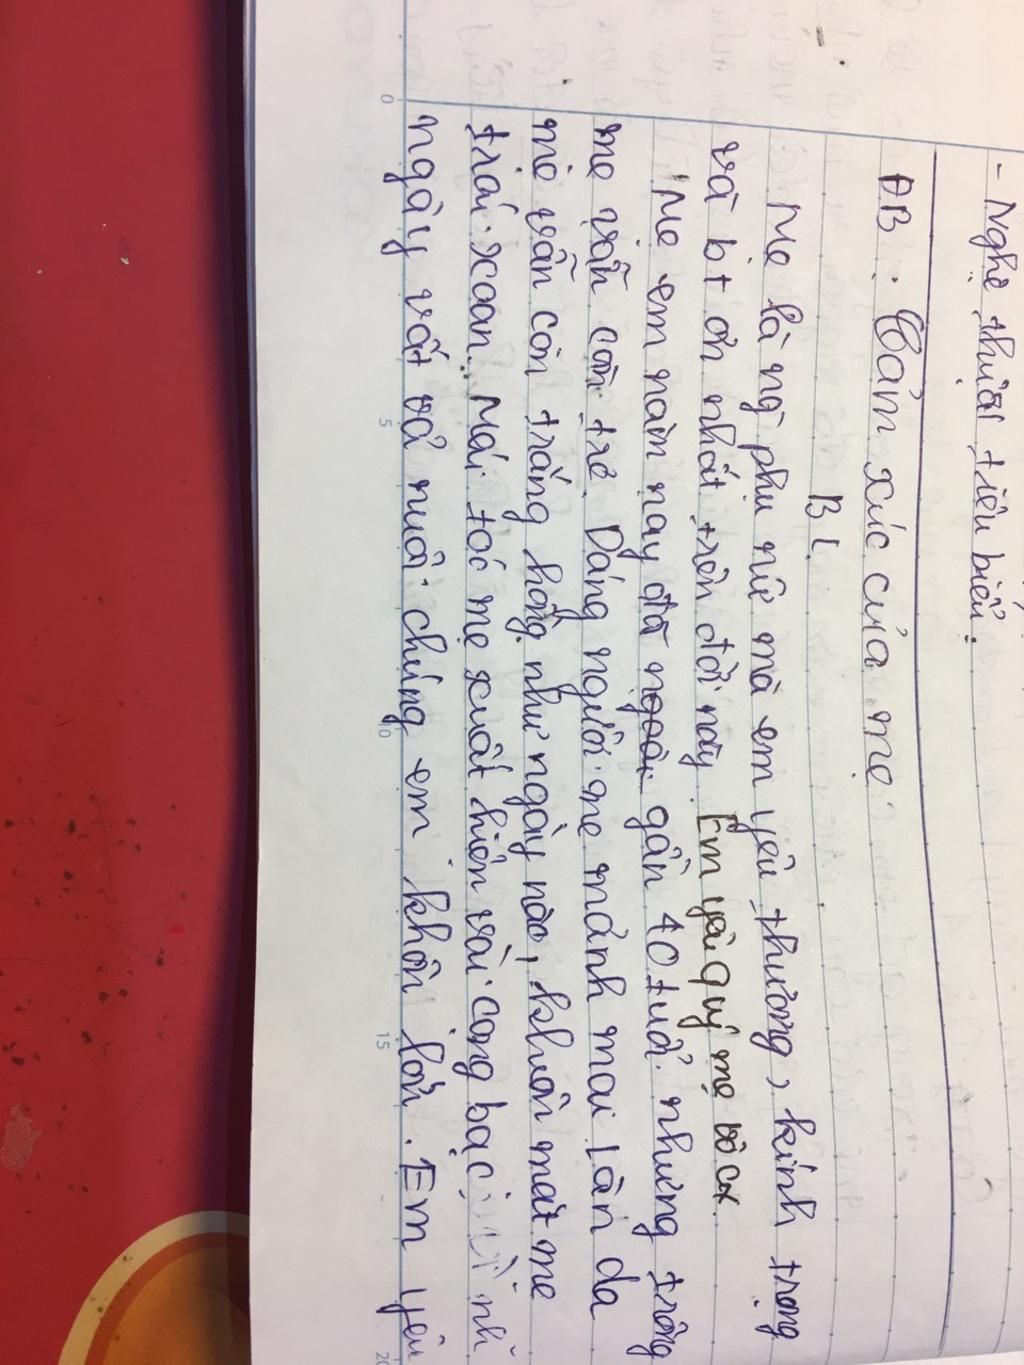 - Nghệ thuật tiêu biểu.
ĐB. Cảm xúc của mẹ
BL
Mẹ là ng` phụ nữ mà em yêu thương, kính trọng
và bt ơn nhất trên đời này. Em yêu quý mẹ vô cx
Mẹ em năm nay đã ngoài gần 40 tuổi. nhưng trông
mẹ vẫn còn trẻ. Dáng người mẹ mảnh mai làn da
mẹ vẫn còn trắng hồng như ngày nào, khuôn mặt mẹ
trái xoan. Mái tóc mẹ xuất hiện vài cọng bạc vì nh
ngày vất vả nuôi chúng em khôn lớn. Em yêu
0
5
10
15
20